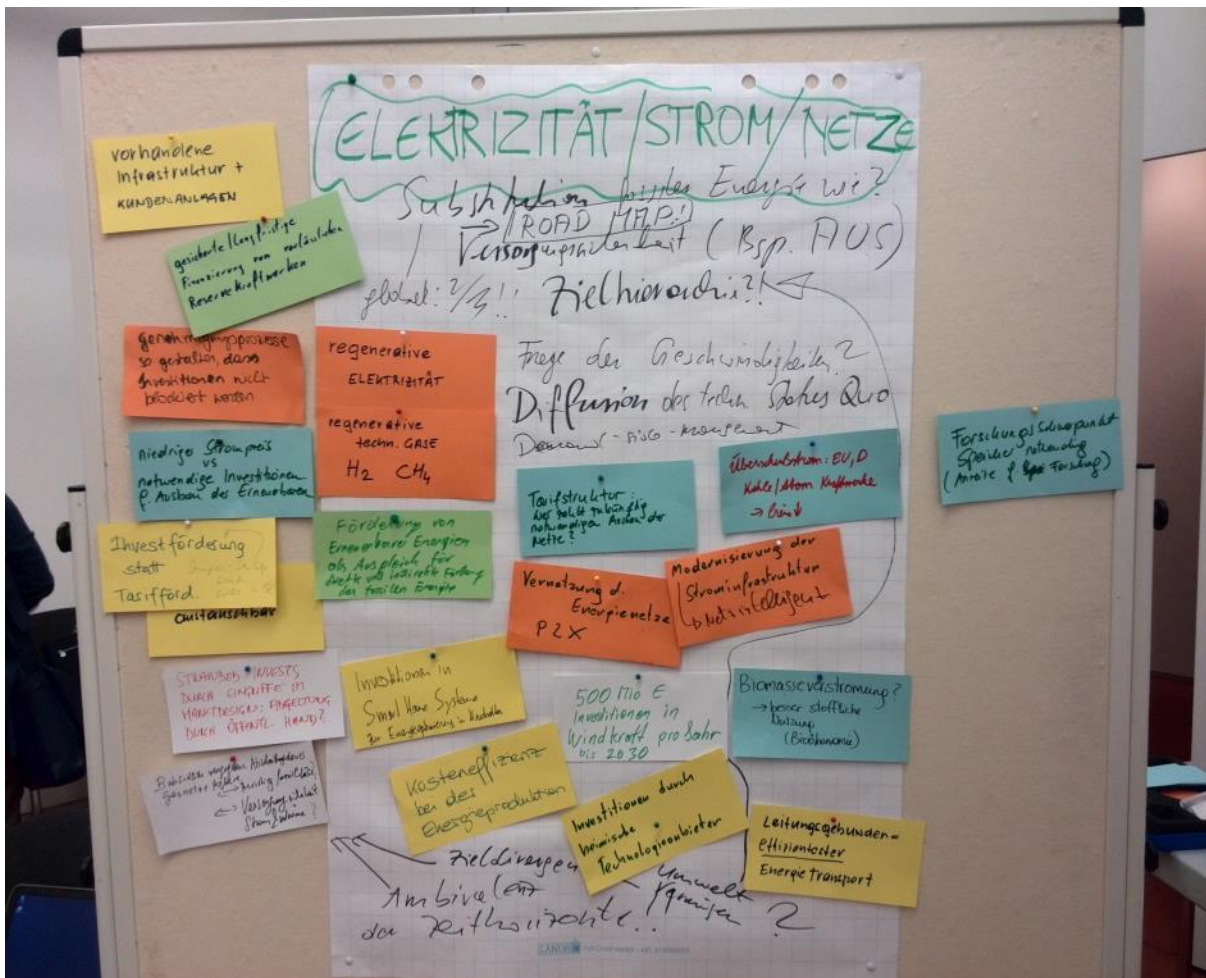 ELEKTRIZITÄT/STROM/NETZE
Substitution fossiler Energie wie?
ROAD MAP!
Versorgungssicherheit (Bsp. AUS)
global: Zielhierarchie?!
Frage der Geschwindigkeiten?
Diffusion des techn. Status Quo
vorhandene
Infrastruktur +
KUNDENANLAGEN
gesicherte/langfristige
Finanzierung von verlässlichen
Reservekraftwerken
Genehmigungsprozesse
so gestalten, dass
Investitionen nicht
blockiert werden
regenerative
ELEKTRIZITÄT
regenerative
techn. GASE
H2 CH4
niedriger Strompreis
vs
notwendige Investitionen
f. Ausbau der Erneuerbaren
Investförderung
statt
Tarifförd.
Förderung von
Erneuerbarer Energien
als Ausgleich für
direkte und indirekte Förderung
der fossilen Energie
Tarifstruktur:
Wer zahlt zukünftig
notwendigen Ausbau der
Netze?
Überschußstrom: EU, D
Kohle/Atom Kraftwerke
Forschungsschwerpunkt
Speicher notwendig
(Anreize f. Forschung)
Vernetzung d.
Energienetze
P2X
Modernisierung der
Strominfrastruktur
STRANDED INVESTS
DURCH EINGRIFFE IM
MARKTDESIGN: ABGELTUNG
DURCH ÖFFENTL. HAND?
Investitionen in
Smart Home Systeme
zur Energieoptimierung in Haushalten
500 Mio €
Investitionen in
Windkraft pro Jahr
bis 2030
Biomasseverstromung?
→ besser stoffliche
Nutzung
(Bioökonomie)
Versorgungssicherheit
Strom/Wärme?
Kosteneffizienz
bei der
Energieproduktion
Investitionen durch
heimische
Technologieanbieter
Leitungsgebunden =
effizientester
Energietransport
Zieldivergenz
Umwelt
Ambivalenz
der Zeithorizonte.. ?